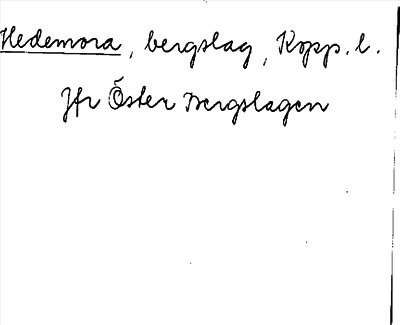 Hedemora, bergslag, Kopp. l.
Jfr Öster Bergslagen